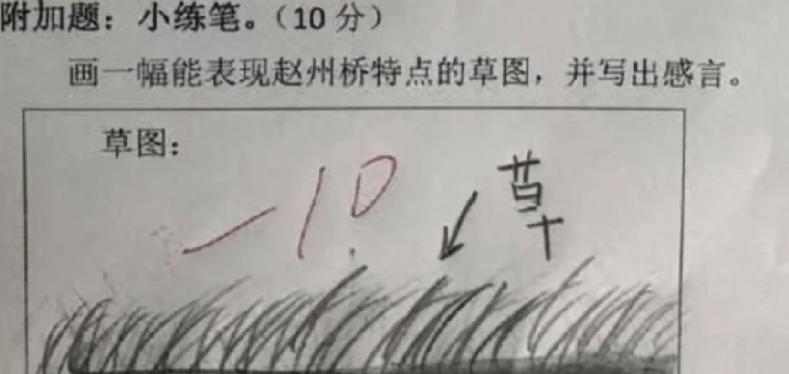 附加题：小练笔。（10 分）
画一幅能表现赵州桥特点的草图，并写出感言。
草图：
-10
草